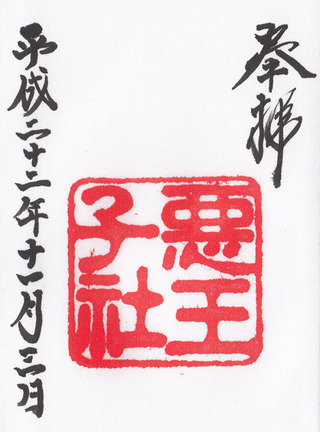 奉拝
悪王
子社
平成二十二年十一月三日